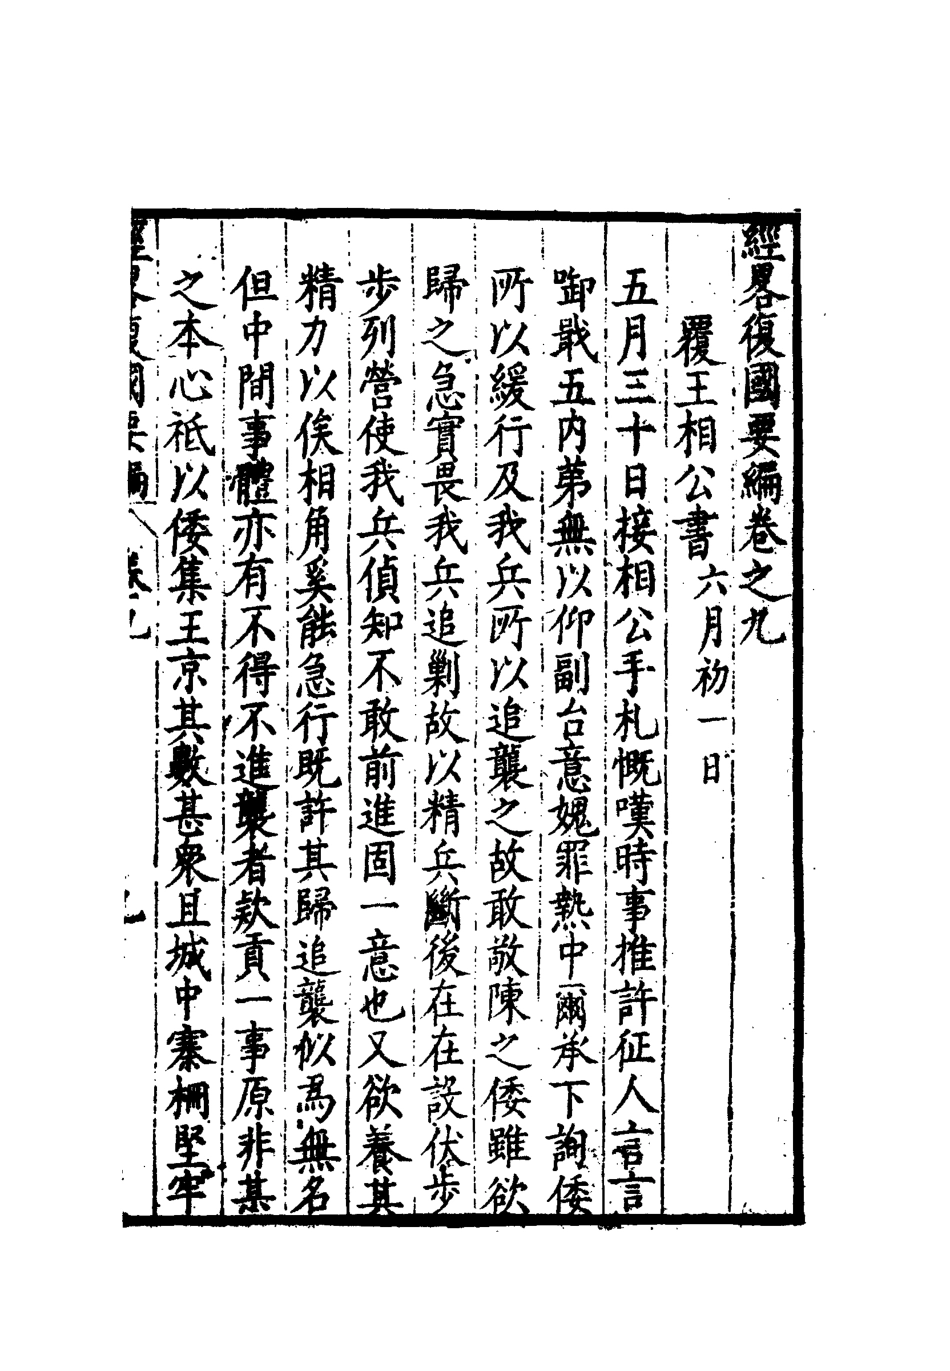 經畧復國要編卷之九
覆王相公書六月初一日
五月三十日接相公手札慨嘆時事推許征人言言
啣戢五内第無以仰副台意媿罪熱中爾承下詢倭
所以緩行及我兵所以追襲之故敢敬陳之倭雖欲
歸之急實畏我兵追剿故以精兵斷後在在設伏步
步列營使我兵偵知不敢前進固一意也又欲養其
精力以俟相角奚能急行既許其歸追襲似為無名
但中間事體亦有不得不進襲者欵貢一事原非某
之本心祗以倭集王京其數甚衆且城中寨柵堅牢
經畧復國要編 卷九